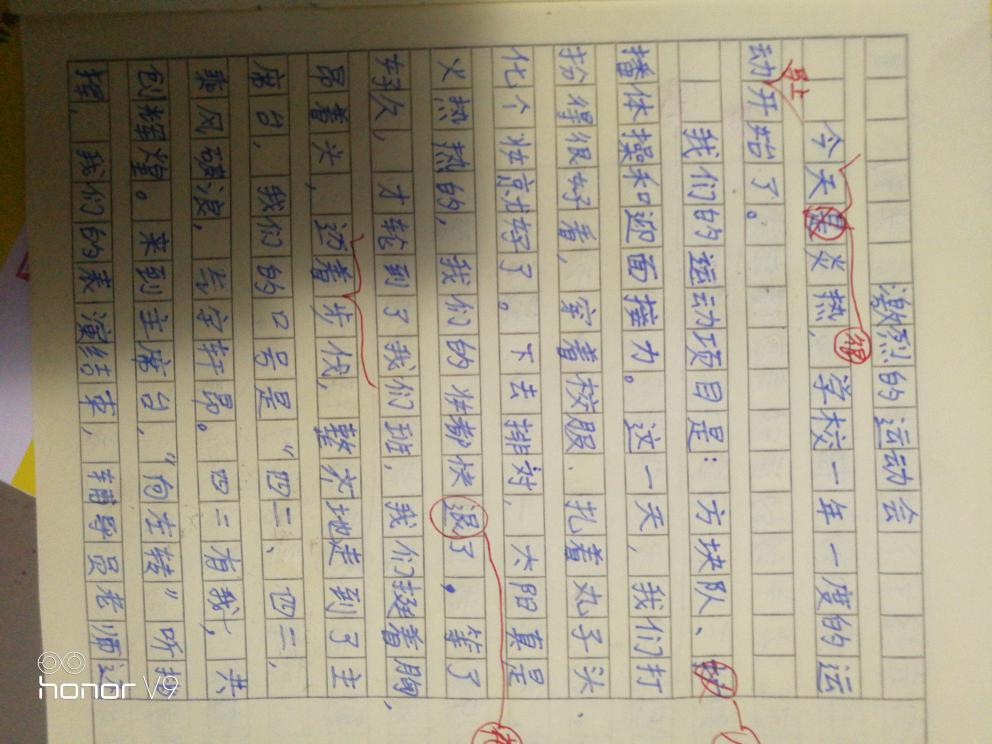 激烈的运动会
今天 炎热，学校一年一度的运
很
动开始了。
我们的运动项目是：方块队、
播体操和迎面接力。这一天，我们打
扮得很好看，穿着校服．扎着丸子头
化个妆就好了。下去排对，太阳真是
火热热的，我们的妆都快退了。等了
好久，才轮到了我们班，我们挺着胸，
昂着头，迈着步伐，整齐地走到了主
席台，我们的口号是“四二、四二，
乘风破浪，气宇轩昂。四二有我，共
创辉煌。来到主席台，“向左转”听
，我们的表演结束，辅导员老师
honor V9